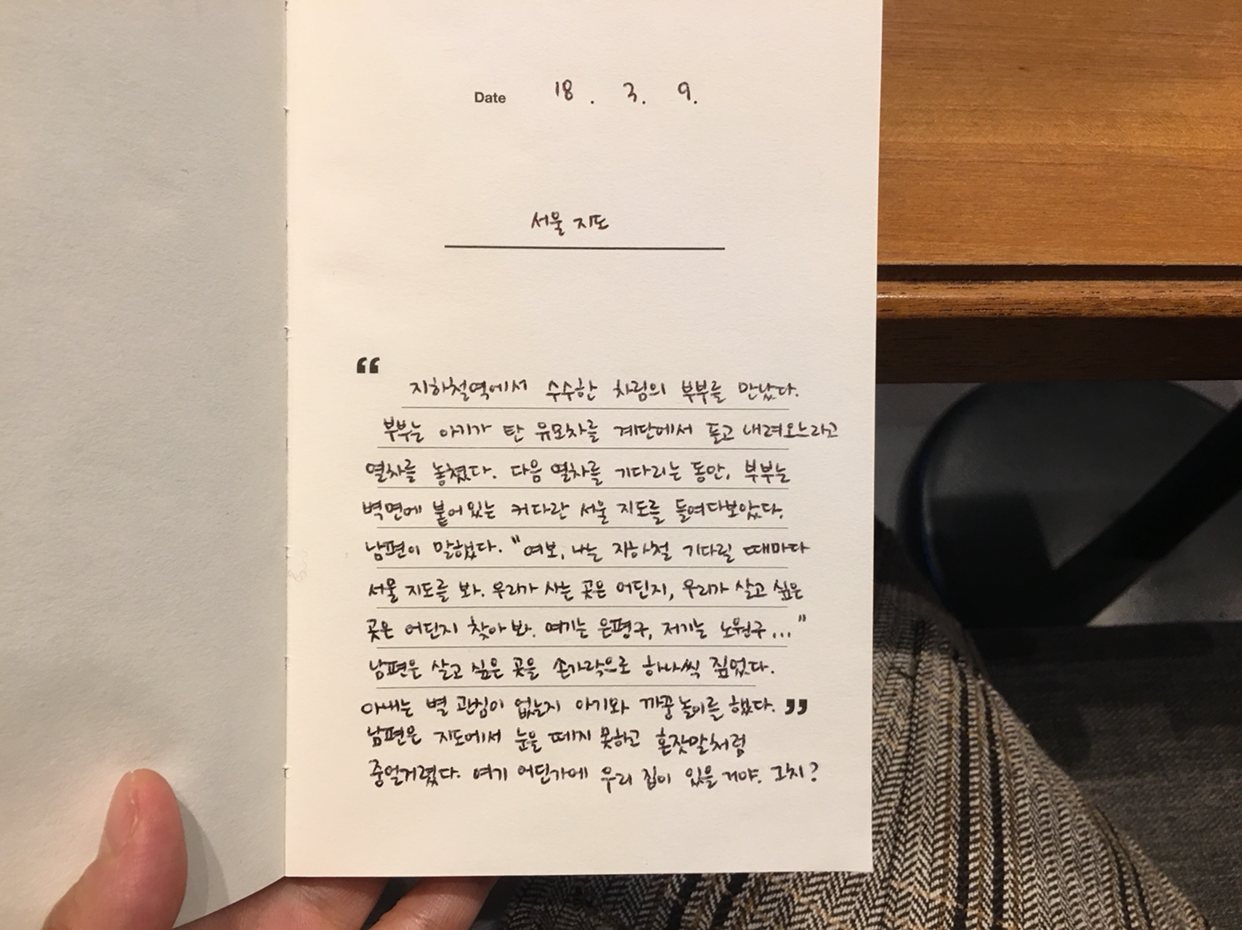 Date 18. 3. 9.
서울 지도
“ 지하철역에서 수수한 차림의 부부를 만났다.
부부는 아기가 탄 유모차를 계단에서 들고 내려오느라고
열차를 놓쳤다. 다음 열차를 기다리는 동안, 부부는
벽면에 붙어있는 커다란 서울 지도를 들여다보았다.
남편이 말했다. "여보, 나는 지하철 기다릴 때마다
서울 지도를 봐. 우리가 사는 곳은 어딘지, 우리가 살고 싶은
곳은 어딘지 찾아 봐. 여기는 은평구, 저기는 노원구..."
남편은 살고 싶은 곳을 손가락으로 하나씩 짚었다.
아내는 별 관심이 없는지 아기와 까꿍놀이를 했다. ”
남편은 지도에서 눈을 떼지 못하고 혼잣말처럼
중얼거렸다. 여기 어딘가에 우리 집이 있을 거야. 그치?